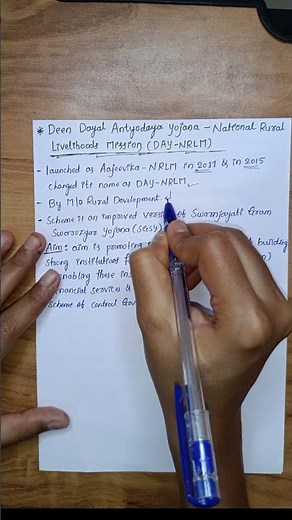 * Deen Dayal Antyodaya Yojana - National Rural
Livelihoods Mission (DAY-NRLM)
- launched as Aajeevika-NRLM in 2011 & in 2015
changed its name as DAY-NRLM
- By M/o Rural Development
- Scheme is an improved version of Swarnjayati Gram
Swarozgar Yojana (SGSY)
Aim: aim is promoting building
strong institutions
enabling these
financial services &
scheme of central Gov